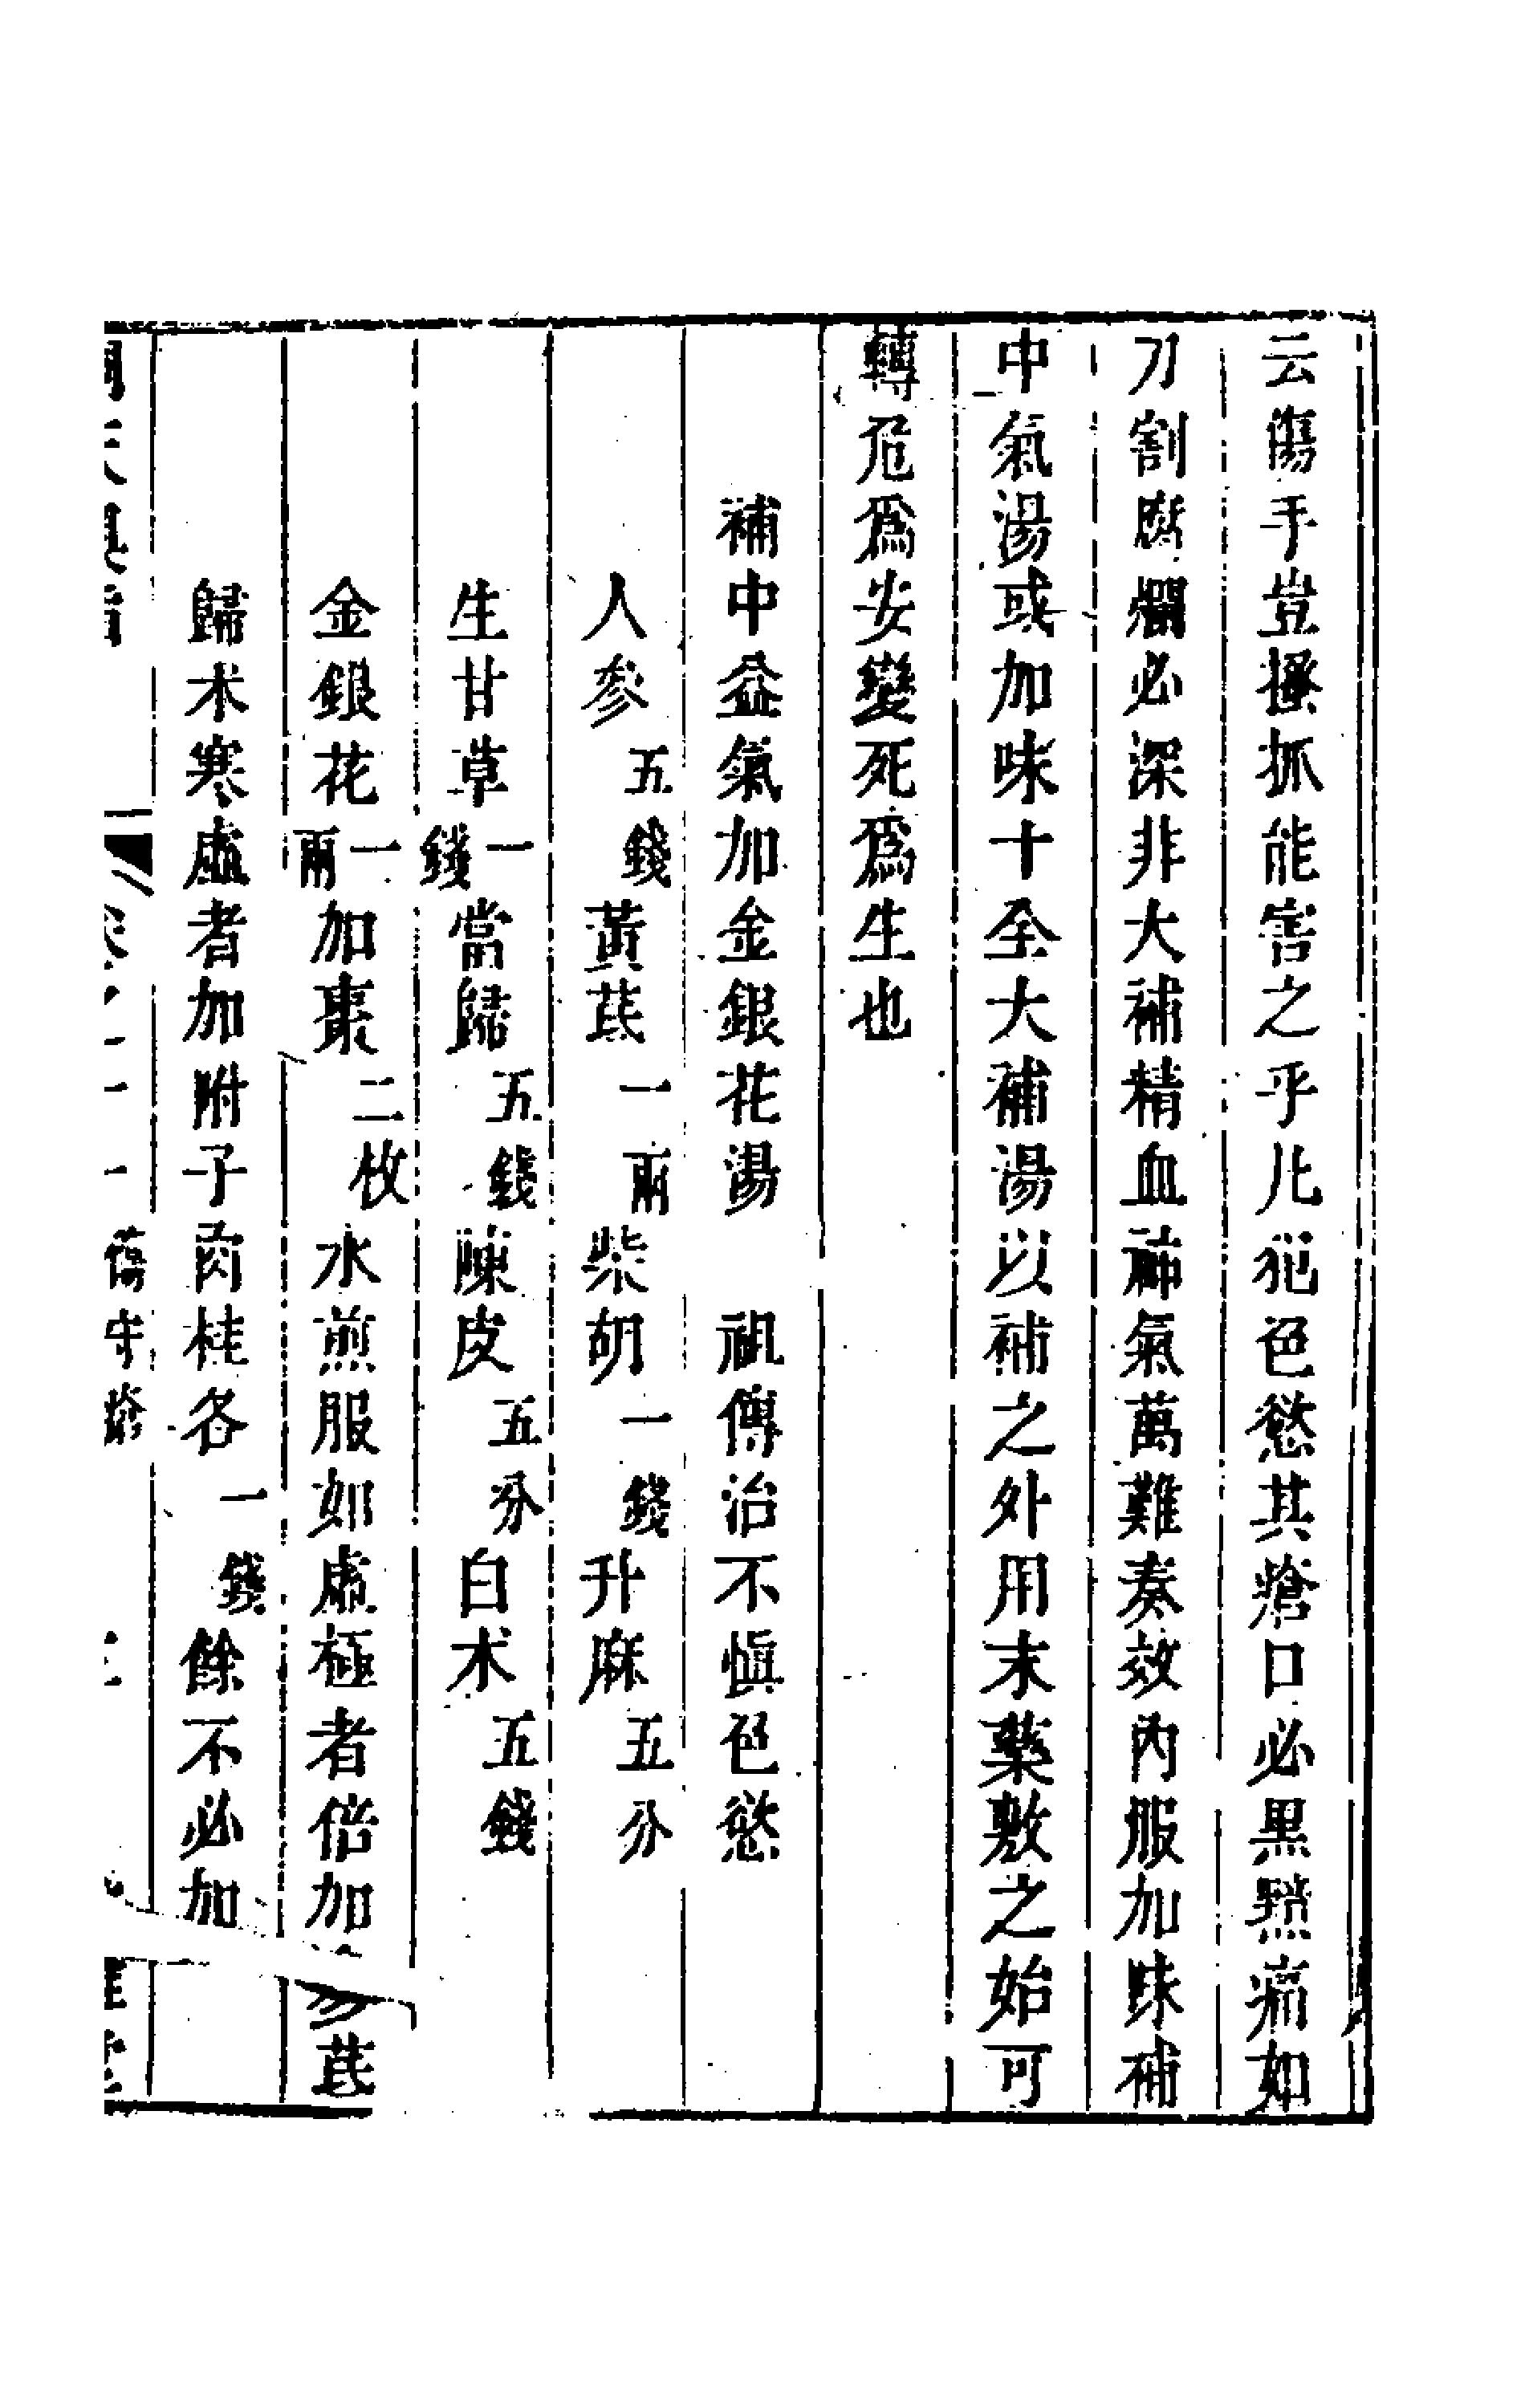 云傷手豈搔抓能害之乎凡犯色慾其瘡口必黑黯痛如
刀割腐爛必深非大補精血神氣萬難奏效內服加味補
中氣湯或加味十全大補湯以補之外用末藥敷之始可
轉危爲安變死爲生也
補中益氣加金銀花湯　祖傳治不慎色慾
人參五錢黃芪一兩柴胡一錢升麻五分
生甘草一錢當歸五錢陳皮五分白朮五錢
金銀花一兩加棗二枚水煎服如虛極者倍加參芪
歸朮寒虛者加附子肉桂各一錢餘不必加